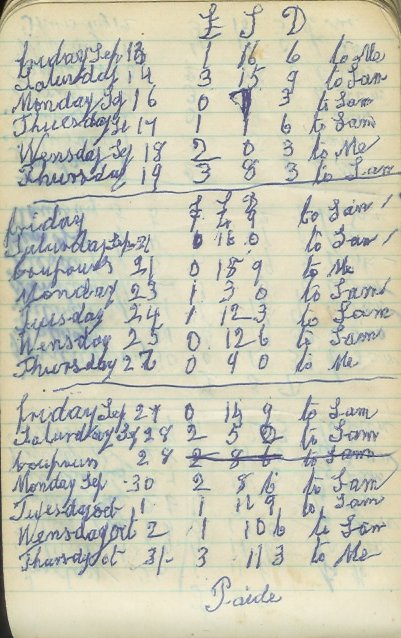 £ S D
Friday Sep 13 1 16 6 to Me
Saturday 14 3 15 9 to Sam
Monday Sep 16 0 3 to Sam
Thuesday Se 17 1 1 6 to Sam
Wensday Sep 18 2 0 3 to Me
Thursday 19 3 8 3 to Sam
£ S D
Friday 9 to Sam /
Saturday Sep 21 0 16 0 to Sam /
Coupouns 21 0 18 9 to Me
Monday 23 1 3 0 to Sam
Tuesday 24 1 12 3 to Sam
Wensday 25 0 12 6 to Sam
Thursday 26 0 9 0 to Me
Friday Sep 27 0 14 9 to Sam
Saturday Sep 28 2 5 to Sam
Coupoun 28 2 8 6 to Sam
Monday Sep 30 2 8 6 to Sam
Tuesday oct 1 1 11 9 to Sam
Wensday oct 2 1 10 6 to Sam
Thursdy ot 3/- 3 11 3 to Me
Paide